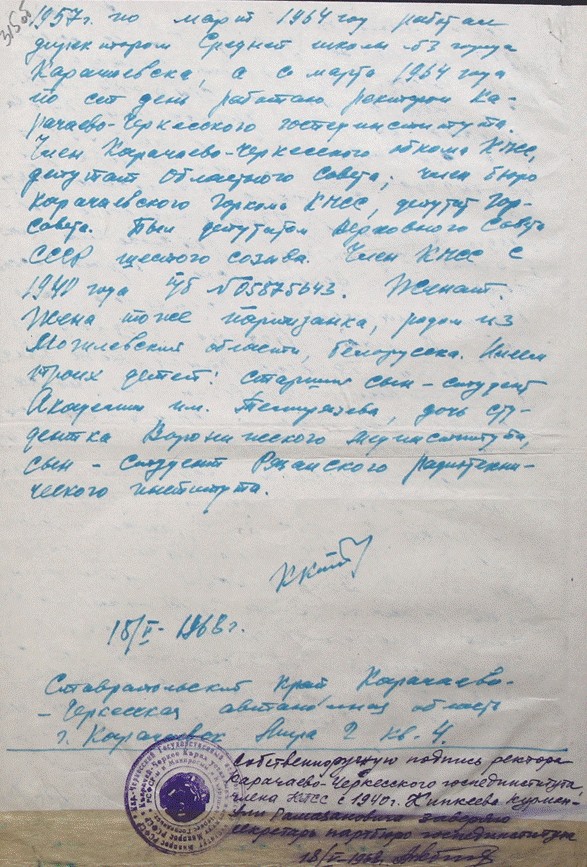 1957г. по март 1964 год работал
директором Средней школы №3 города
Карачаевска, а с марта 1964 года
по сей день работаю ректором Ка-
рачаево-Черкесского госпединститута.
Член Карачаево-Черкесского обкома КПСС,
депутат Областного Совета, член бюро
Карачаевского Горкома КПСС, депутат Гор-
совета. Был депутатом Верховного Совета
СССР шестого созыва. Член КПСС с
1940 года ч/б №05875643. Женат.
Жена тоже партизанка, родом из
Могилевской области, белоруска. Имеем
троих детей: старший сын-студент
Академии им. Темирязева, дочь сту-
дентка Воронежского мединститута,
сын - студент Рязанского радиотехни-
ческого института.
18/V-1968г.
Ставропольский край Карачаево-
-Черкесская автономная область
г. Карачаевск Мира 2 кв. 4.
Собственноручную подпись ректора
Карачаево-Черкесского госпединститута,
члена КПСС с 1940г. Х
Рамазановича заверяю
секретарь партбюро госпединститута
18/V-1968г.